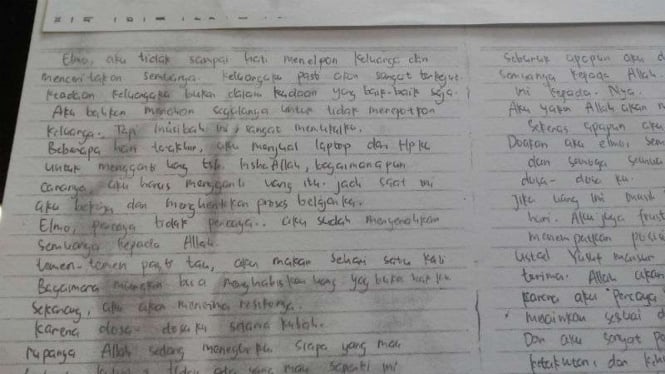 Elmo, aku tidak sampai hati menelpon keluarga dan
menceritakan semuanya. Keluargaku pasti akan sangat terkejut.
Keadaan keluargaku bukan dalam keadaan yang baik-baik saja.
Aku bahkan menahan segalanya untuk tidak merepotkan
keluarga. Tapi musibah ini, sangat
Beberapa hari terakhir, aku menjual laptop dan Hp ku
untuk mengganti uang tsb. InshaAllah, bagaimanapun
caranya, aku harus mengganti uang itu. Jadi saat ini
aku bekerja dan menghentikan proses belajarku.
Elmo, percaya tidak percaya.. aku sudah menyerahkan
semuanya kepada Allah.
temen-temen pasti tau, aku makan sehari satu kali
Bagaimana mungkin bisa menghabiskan uang yg bukan hak ku
Sekarang, aku akan menerima resikonya.
karena dosa-dosaku selama kuliah.
rupanya Allah sedang menegurku. Siapa yang mau
tidak ada yang mau seperti ini
Seburuk apapun aku
semuanya kepada Allah
ini kepada-Nya.
Aku yakin Allah akan
Sekeras apapun aku
Doakan aku elmo,
dan semoga
dosa-dosa ku.
Jika uang ini
Aku juga
menempatkan posisi
ustad Yusuf mansur
terima. Allah akan
karena aku percaya
mainkan sesuai
Dan aku sangat
ketakutan, dan